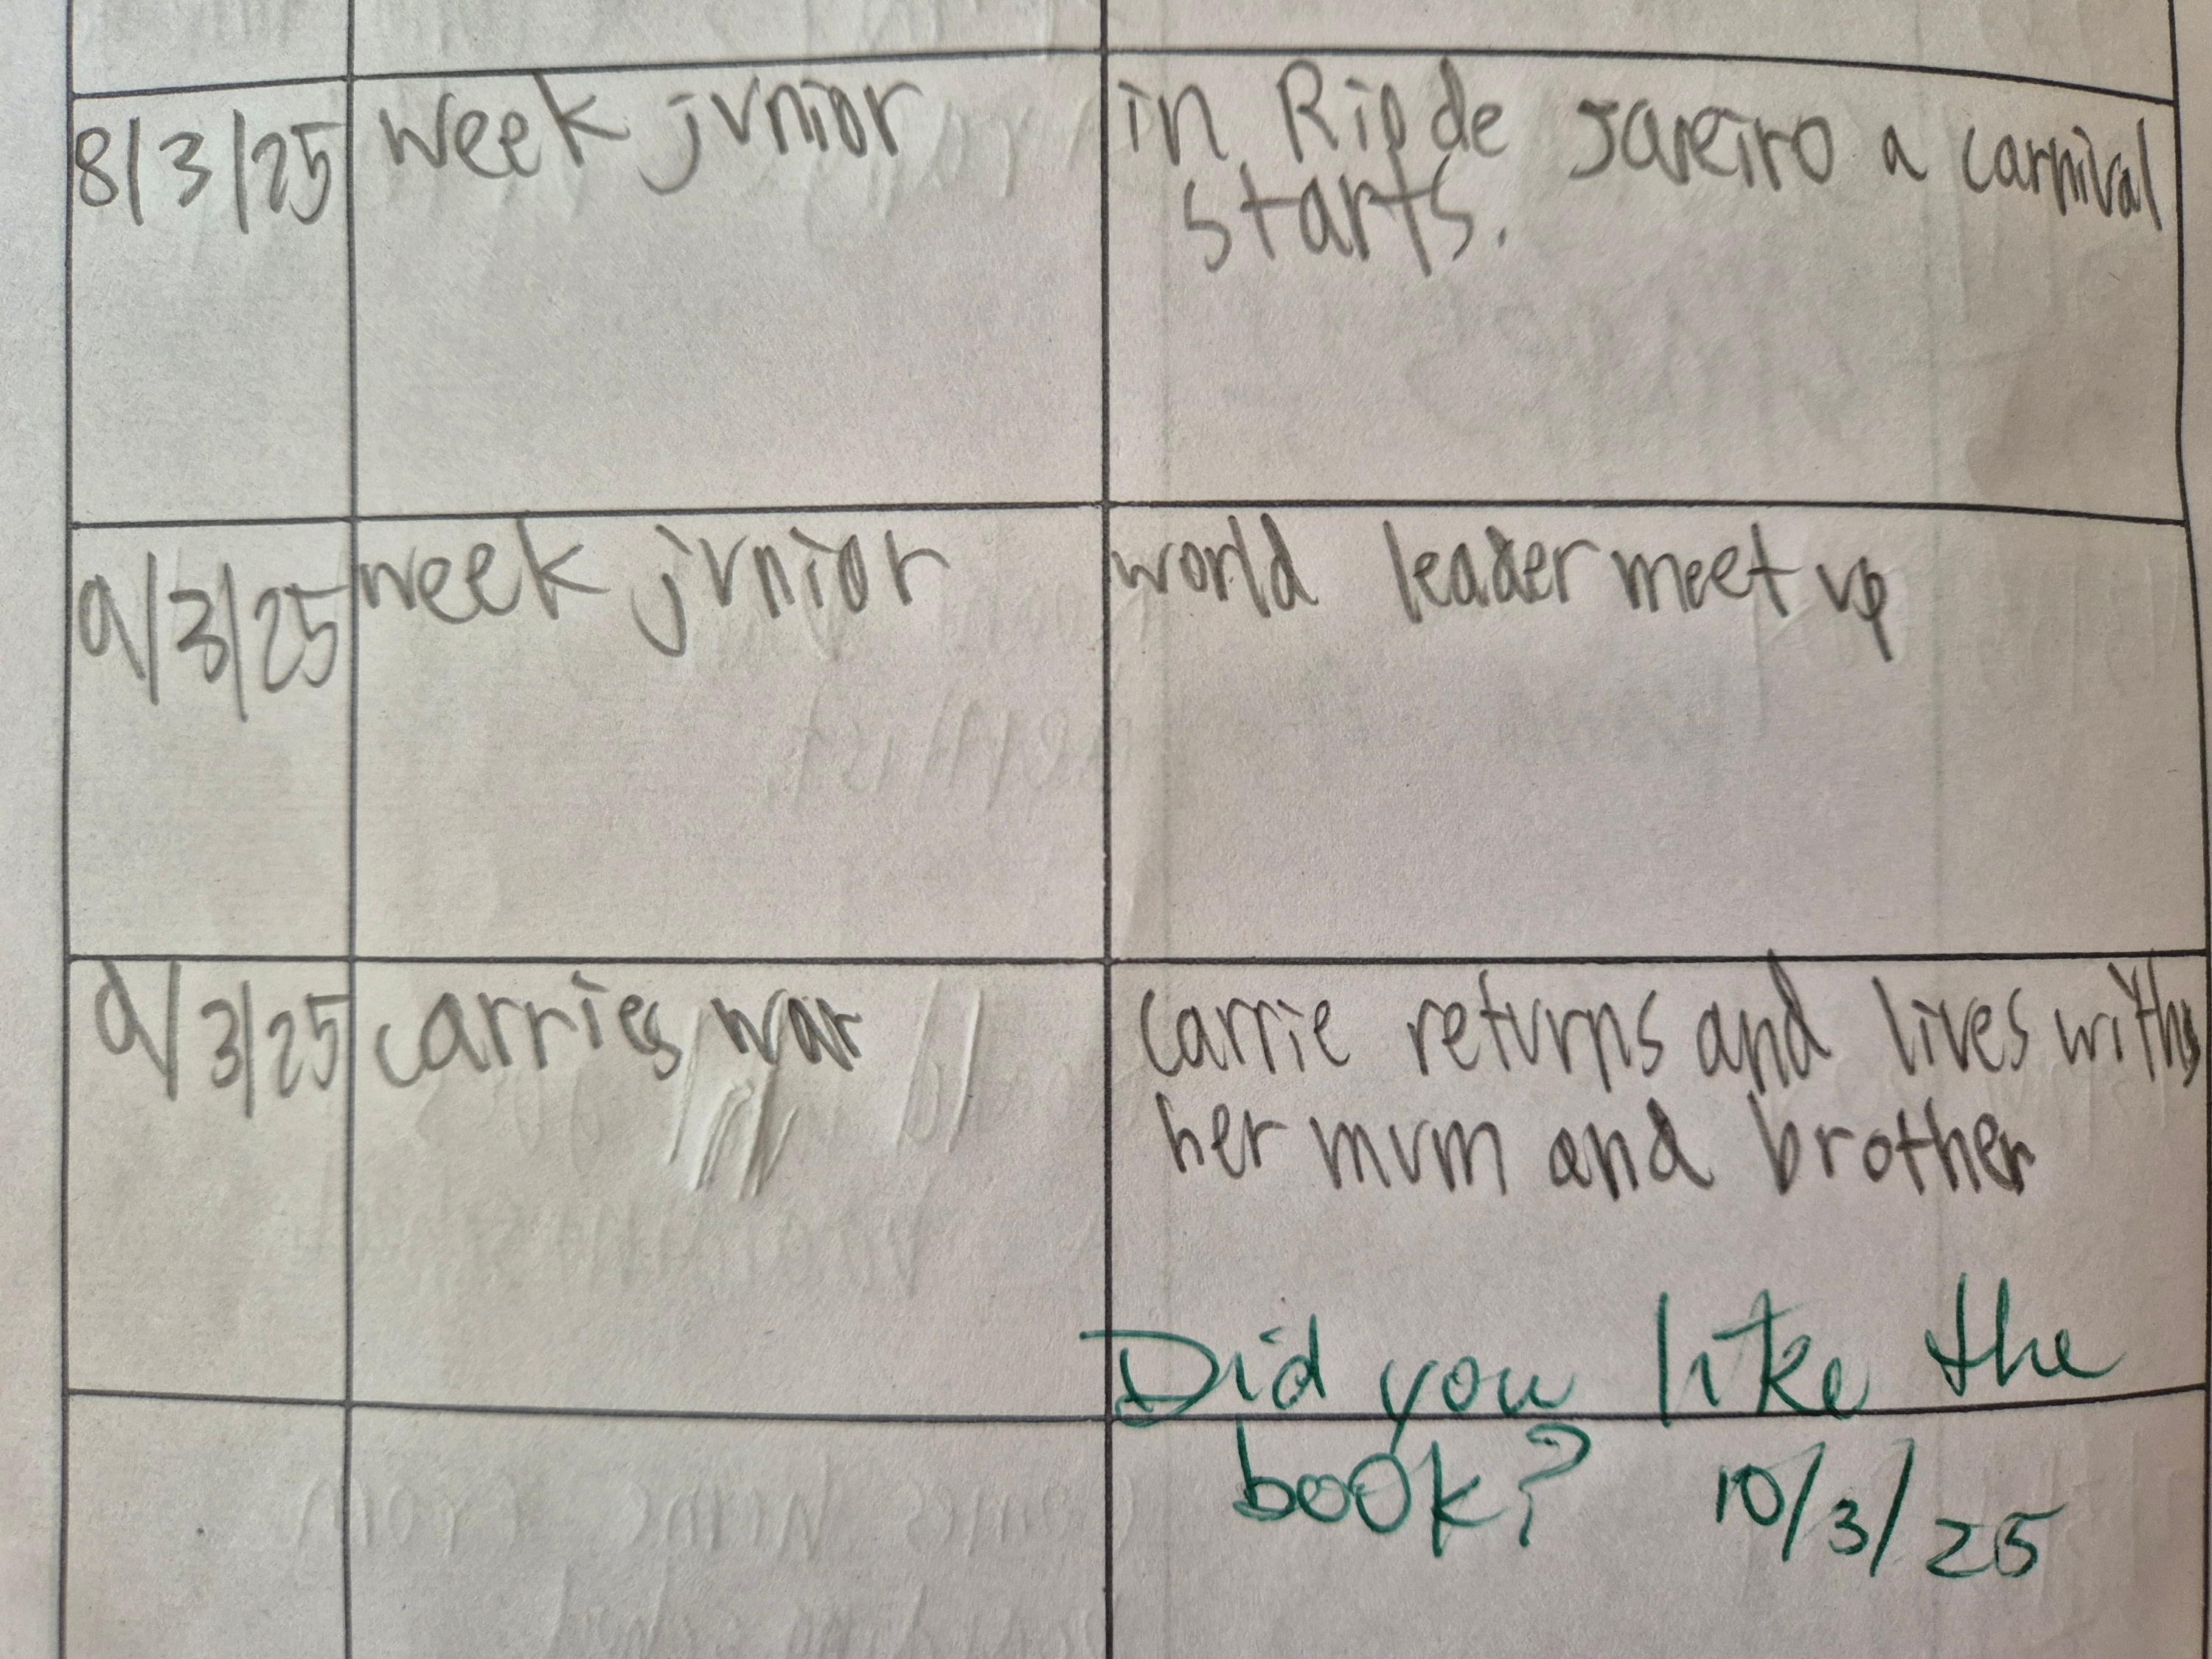 8/3/25 week junior in Rio de Janeiro a carnival
starts.
9/3/25 week junior world leader meet up
9/3/25 carries war carrie returns and lives with
her mum and brother
Did you like the
book? 10/3/25